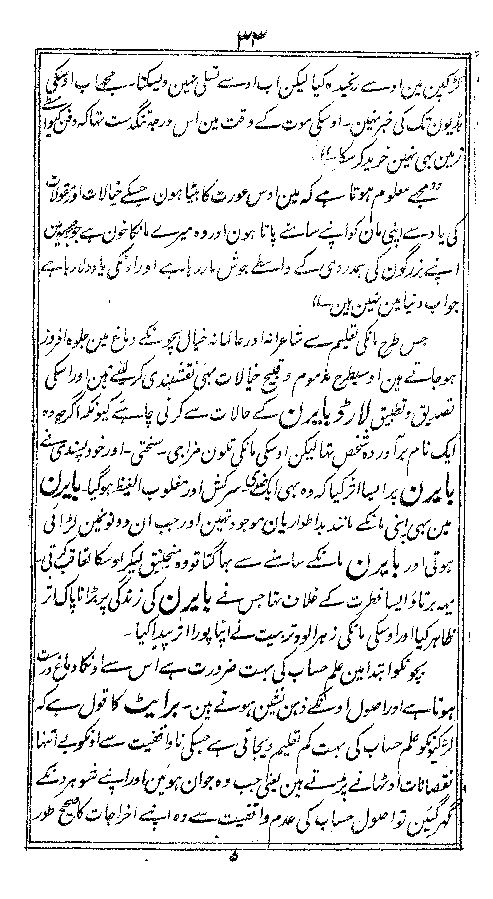 ۳۳
لڑکپن مین اوسے رنجیدہ کیا لیکن اب اوسے تسلی نہین دیسکتا۔ مجھے اب اوسکی
ہڈیون تک کی خبر نہین۔ اوسکی موت کے وقت مین اس درجہ تنگدست تہا کہ دفن کیواسطے
زمین بہی نہین خرید کر سکا۔"
"مجھے معلوم ہوتا ہے کہ مین اوس عورت کا بیٹا ہون جسکے خیالات اور مقولات
کی یاد سے اپنی مان کو اپنے سامنے پاتا ہون اور وہ میرے مانکا خون ہے جو مجھ مین
اپنے بزرگون کی ہمدردی کے واسطے جوش مار رہا ہے اور اونکی یاد دلا رہا ہے
جو اب دنیا مین نہین ہین۔"
جس طرح مانکی تعلیم سے شاعرانہ اور عالمانہ خیال بچونکے دماغ مین جلوہ افروز
ہو جاتے ہین اوسیطرح مذموم و قبیح خیالات بہی نقشبندی کر لیتے ہین اور اسکی
تصدیق و تطبیق لارڈ بایرن کے حالات سے کرنی چاہیے کیونکہ اگرچہ وہ
ایک نام برآوردہ شخص تہا لیکن اوسکی مانکی تلون مزاجی۔ سختی۔ اور خود پسندی نے
بایرن پر ایسا اثر کیا کہ وہ بہی ایک ضدی۔ سرکش اور مغلوب الغیظ ہوگیا۔ بایرن
مین بہی اپنی مانکے مانند بداطواریان موجود تہین اور جب ان دونونمین لڑائی
ہوتی اور بایرن مانکے سامنے سے بہاگتا تو وہ منجنیق لیکر اوسکا تعاقب کرتی۔
یہہ برتاؤ ایسا فطرت کے خلاف تہا جس نے بایرن کی زندگی پر بڑا ناپاک اثر
ظاہر کیا اور اوسکی مانکی زہرآلود تربیت نے اپنا پورا اثر پیدا کیا۔
بچونکو ابتدا مین علم حساب کی بہت ضرورت ہے اس سے اونکا دماغ درست
ہوتا ہے اور اصول اونکے ذہن نشین ہوتے ہین۔ برایٹ کا قول ہے کہ
لڑکیونکو علم حساب کی بہت کم تعلیم دیجاتی ہے جسکی ناواقفیت سے اونکو بے انتہا
نقصانات اوٹہانے پڑتے ہین یعنی جب وہ جوان ہوئین اور اپنے شوہرونکے
گہر گئین تو اصول حساب کی عدم واقفیت سے وہ اپنے اخراجات کا صحیح طور
۵